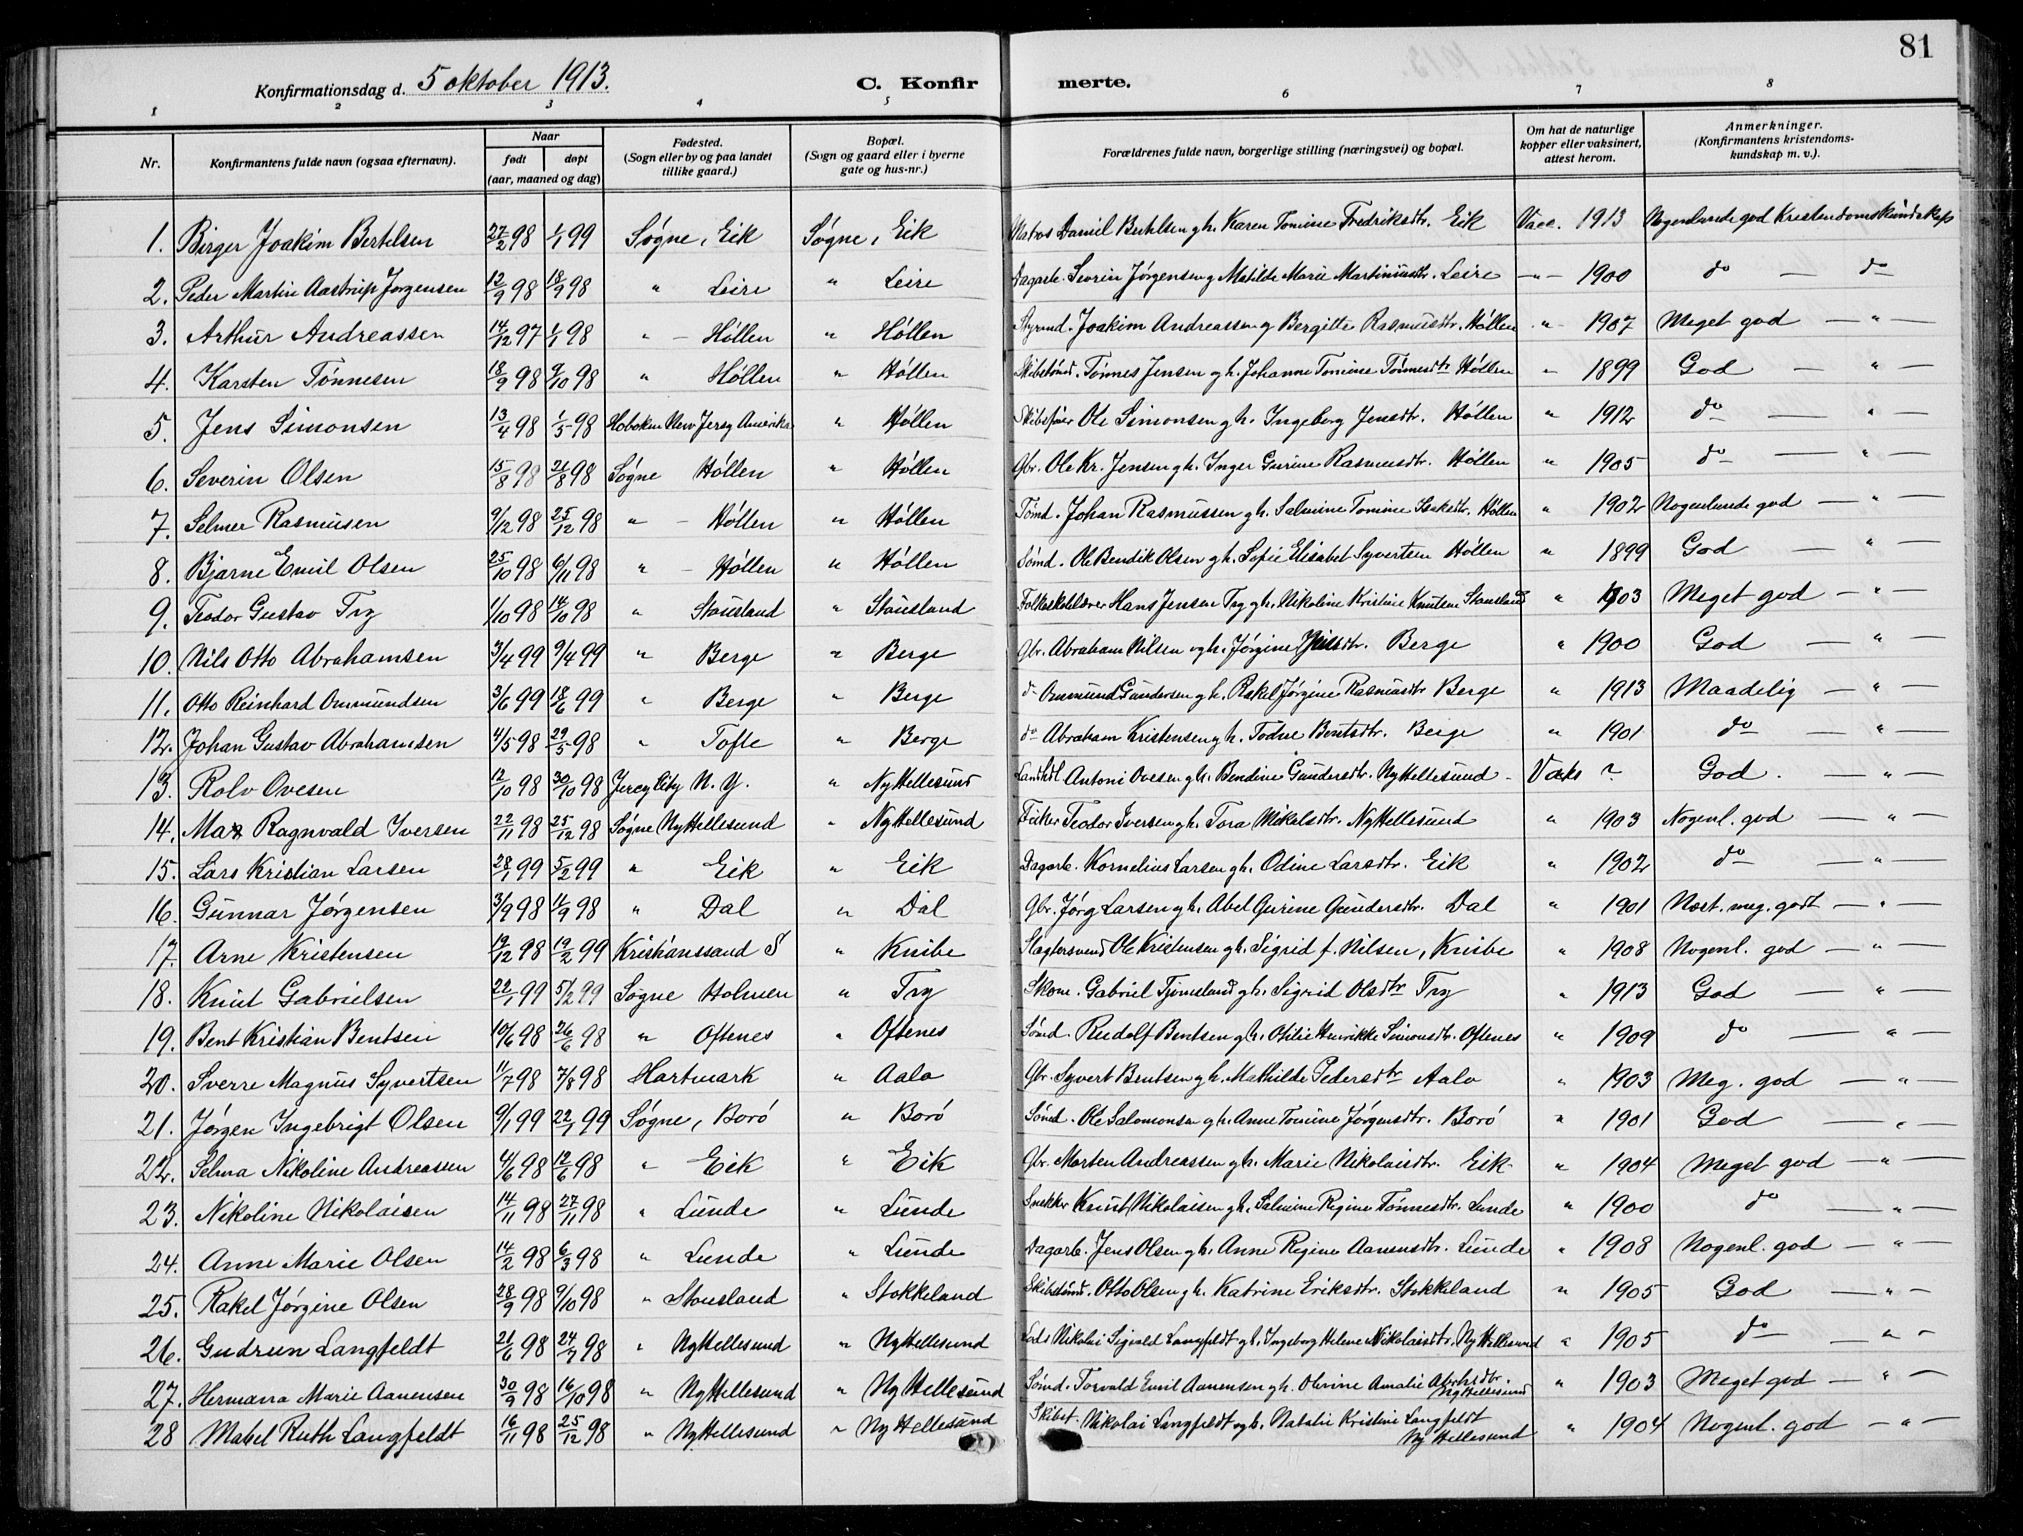 81
Konfirmationsdag d. 5 oktober 1913. C. Konfir merte.
1 2 3 4 5 6 7 8
Nr. Konfirmantens fulde navn (ogsaa efternavn). Naar født døpt (aar, maaned og dag) Fødested. (Sogn eller by og paa landet tillike gaard.) Bopæl. (Sogn og gaard eller i byerne gate og hus-nr.) Forældrenes fulde navn, borgerlige stilling (næringsvei) og bopæl. Om hat de naturlige kopper eller vaksinert, attest herom. Anmerkninger. (Konfirmantens kristendoms-kundskap m. v.).
1. Birger Joakim Bertelsen 27/2 98 1/1 99 Søgne, Eik Søgne, Eik Matros Daniel Bertelsen g h. Karen Tomine Fredriksdtr. Eik Vacc. 1913 Nogenlunde god Kristendomskundskap
2. Peder Martin Aastrup Jørgensen 12/9 98 18/9 98 " Leire " Leire Dagarb. Sevrin Jørgensen g Matilde Marie Martiniusdtr. Leire -"- 1900 do — do
3. Arthur Andreassen 14/12 97 1/1 98 " - Høllen " Høllen Styrmd. Joakim Andreassen g Bergitte Rasmusdtr. Høllen " 1907 Meget god — " —
4. Karsten Tønnesen 18/9 98 9/10 98 " Høllen " Høllen Skibstømd. Tønnes Jensen g h. Johanne Tomine Tønnesdtr Høllen " 1899 God — " —
5. Jens Simonsen 13/4 98 1/5 98 Hoboken New Jersy Amerika " Høllen Skibsfører Ole Simonsen g h. Ingeborg Jensdtr. Høllen " 1912 do — " —
6. Severin Olsen 15/8 98 21/8 98 Søgne Høllen " Høllen Gbr. Ole Kr. Jensen g h. Inger Gurine Rasmusdtr. Høllen " 1905 do — " —
7. Selmer Rasmusen 9/12 98 25/12 98 " - Høllen " Høllen Tømd. Johan Rasmussen g h. Salmine Tomine Isaksdtr. Høllen " 1902 Nogenlunde god — " —
8. Bjarne Emil Olsen 25/10 98 6/11 98 " - Høllen " Høllen Sømd. Ole Bendik Olsen g h. Sofie Elisabet Syvertsen Høllen " 1899 God — " —
9. Teodor Gustav Try 1/10 98 14/10 98 " Stausland " Stausland Folkeskolelærer Hans Jensen Try g h. Nikoline Kristine Knutsen Stausland " 1903 Meget god — " —
10. Nils Otto Abrahamsen 3/4 99 9/4 99 " Berge " Berge Gbr. Abraham Nilsen og h. Jørgine Jensdtr. Berge " 1900 God — " —
11. Otto Reinhard Ommundsen 3/6 99 18/6 99 " Berge " Berge do Ommund Gundersen g h. Rakel Jørgine Rasmusdtr Berge " 1913 Maadelig — " —
12. Johan Gustav Abrahamsen 4/5 98 29/5 98 " Tofte " Berge do Abraham Kristensen g h. Todne Bentsdtr. Berge " 1901 do — " —
13. Rolv Ovesen 12/10 98 30/10 98 Jercy City N. Y. " Ny Hellesund Landhdl. Antoni Ovesen g h. Bendine Gundersdtr. Ny Hellesund - Vaks ? God. — " —
14. Max Ragnvald Iversen 22/11 98 25/12 98 Søgne Ny Hellesund " Ny Hellesund Fisker Teodor Iversen g h. Tora Nikolsdtr. Ny Hellesund " 1903 Nogenl. god — " —
15. Lars Kristian Larsen 28/1 99 5/2 99 " Eik " Eik Dagarb. Kornelius Larsen g h. Odine Larsdtr. Eik " 1902 do — " —
16. Gunnar Jørgensen 3/9 98 11/9 98 " Dal " Dal Gbr. Jørg Larsen g h. Abel Gurine Gundersdtr. Dal " 1901 Næst. meg. godt — " —
17. Arne Kristensen 19/12 98 19/2 99 Kristianssand S " Knibe Slagtersvend Ole Kristensen g h. Sigrid f. Nilsen, Knibe " 1908 Nogenl. god — " —
18. Knut Gabrielsen 22/1 99 5/2 99 Søgne Holmen " Try Skom. Gabriel Tjomsland g h. Sigrid Olsdtr Try " 1913 God — " —
19. Bent Kristian Bentsen 10/6 98 26/6 98 " Oftenes " Oftenes Sømd. Rudolf Bentsen g h. Otilie Henrikke Simonsdtr. Oftenes " 1909 do — " —
20. Sverre Magnus Syvertsen 11/7 98 7/8 98 Hartmark " Aalo Gbr. Syvert Bentsen g h. Mathilde Pedersdtr Aalo " 1903 Meg. god — " —
21. Jørgen Ingebrigt Olsen 9/1 99 22/1 99 Søgne, Borö " Borö Sømd. Ole Salomonsen g h. Anne Tomine Jørgensdtr. Borö " 1901 God — " —
22. Selma Nikoline Andreassen 4/6 98 12/6 98 " Eik " Eik Gbr. Morten Andreassen g h. Marie Nikolaisdtr. Eik " 1904 Meget god — " —
23. Nikoline Nikolaisen 14/11 98 27/11 98 " Lunde " Lunde Snekker Knut Nikolaisen g h. Salmine Regine Tønnesdtr. Lunde " 1900 do — " —
24. Anne Marie Olsen 14/2 98 6/3 98 " Lunde " Lunde Dagarb. Jens Olsen g h. Anne Regine Aanensdtr. Lunde " 1908 Nogenl. god — " —
25. Rakel Jørgine Olsen 28/9 98 9/10 98 " Stausland " Stokkeland Skibstømd. Otto Olsen g h. Katrine Eriksdtr. Stokkeland " 1905 God — " —
26. Gudrun Langfeldt 21/6 98 24/7 98 " Ny Hellesund " Ny Hellesund Lods Nikolai Sigvald Langfeldt g h. Ingeborg Helene Nikolaisdtr. Ny Hellesund " 1905 do — " —
27. Hermana Marie Aanensen 30/9 98 16/10 98 " Ny Hellesund " Ny Hellesund Sømd. Torvald Emil Aanensen g h. Olevine Amalie Abrhdtr. Ny Hellesund " 1903 Meget god — " —
28 Mabel Ruth Langfeldt 16/11 98 25/12 98 " Ny Hellesund " Ny Hellesund Skibst. Nikolai Langfeldt og h. Natalie Kristine Langfeldt Ny Hellesund " 1904 Nogenl. god — " —